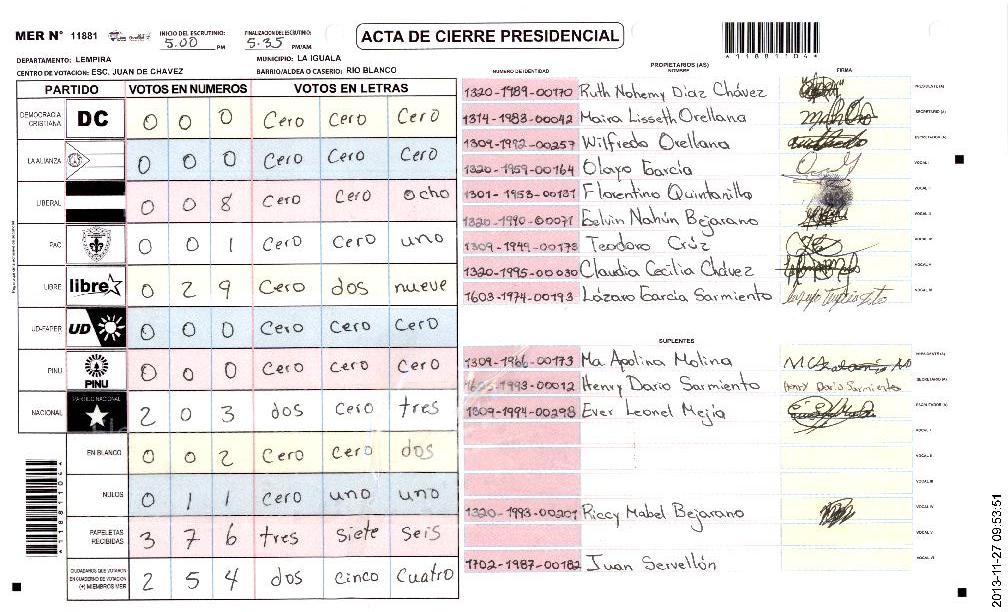 MER Nº 11881 INICIO DEL ESCRUTINIO: 5:00 PM FINALIZACION DEL ESCRUTINIO: 5:35 PM/AM
ACTA DE CIERRE PRESIDENCIAL
*11881104*
DEPARTAMENTO: LEMPIRA MUNICIPIO: LA IGUALA
CENTRO DE VOTACION: ESC. JUAN DE CHAVEZ BARRIO/ALDEA O CASERIO: RIO BLANCO
PARTIDO VOTOS EN NUMEROS VOTOS EN LETRAS
DEMOCRACIA CRISTIANA DC 0 0 0 Cero Cero Cero
LA ALIANZA 0 0 0 Cero Cero Cero
LIBERAL 0 0 8 Cero Cero ocho
PAC 0 0 1 Cero Cero uno
LIBRE libre 0 2 9 Cero dos nueve
UD-FAPER UD 0 0 0 Cero Cero Cero
PINU PINU 0 0 0 Cero Cero Cero
NACIONAL PARTIDO NACIONAL 2 0 3 dos Cero tres
EN BLANCO 0 0 2 Cero Cero dos
NULOS 0 1 1 Cero uno uno
PAPELETAS RECIBIDAS 3 7 6 tres siete seis
CIUDADANOS QUE VOTARON EN CUADERNO DE VOTACION (+) MIEMBROS MER 2 5 4 dos cinco Cuatro
PROPIETARIOS (AS)
NUMERO DE IDENTIDAD NOMBRE FIRMA
1320-1989-00170 Ruth Nohemy Diaz Chávez PRESIDENTE (A)
1314-1983-00042 Maira Lisseth Orellana SECRETARIO (A)
1309-1992-00257 Wilfredo Orellana ESCRUTADOR (A)
1320-1959-00164 Olayo García VOCAL I
1301-1953-00131 Florentino Quintanilla VOCAL II
1320-1990-00071 Eelvin Nahún Bejarano VOCAL III
1309-1949-00173 Teodoro Crúz VOCAL IV
1320-1995-00030 Claudia Cecilia Chávez VOCAL V
1603-1974-00193 Lázaro García Sarmiento VOCAL VI
SUPLENTES
1309-1966-00173 Ma Apolina Molina PRESIDENTE (A)
1603-1993-00012 Henry Dario Sarmiento Henry Dario Sarmiento SECRETARIO (A)
1309-1994-00298 Ever Leonel Mejía ESCRUTADOR (A)
VOCAL I
VOCAL II
VOCAL III
1320-1993-00201 Riccy Mabel Bejarano VOCAL IV
VOCAL V
1702-1987-00182 Juan Servellón VOCAL VI
*11881104*
2013-11-27 09:53:51